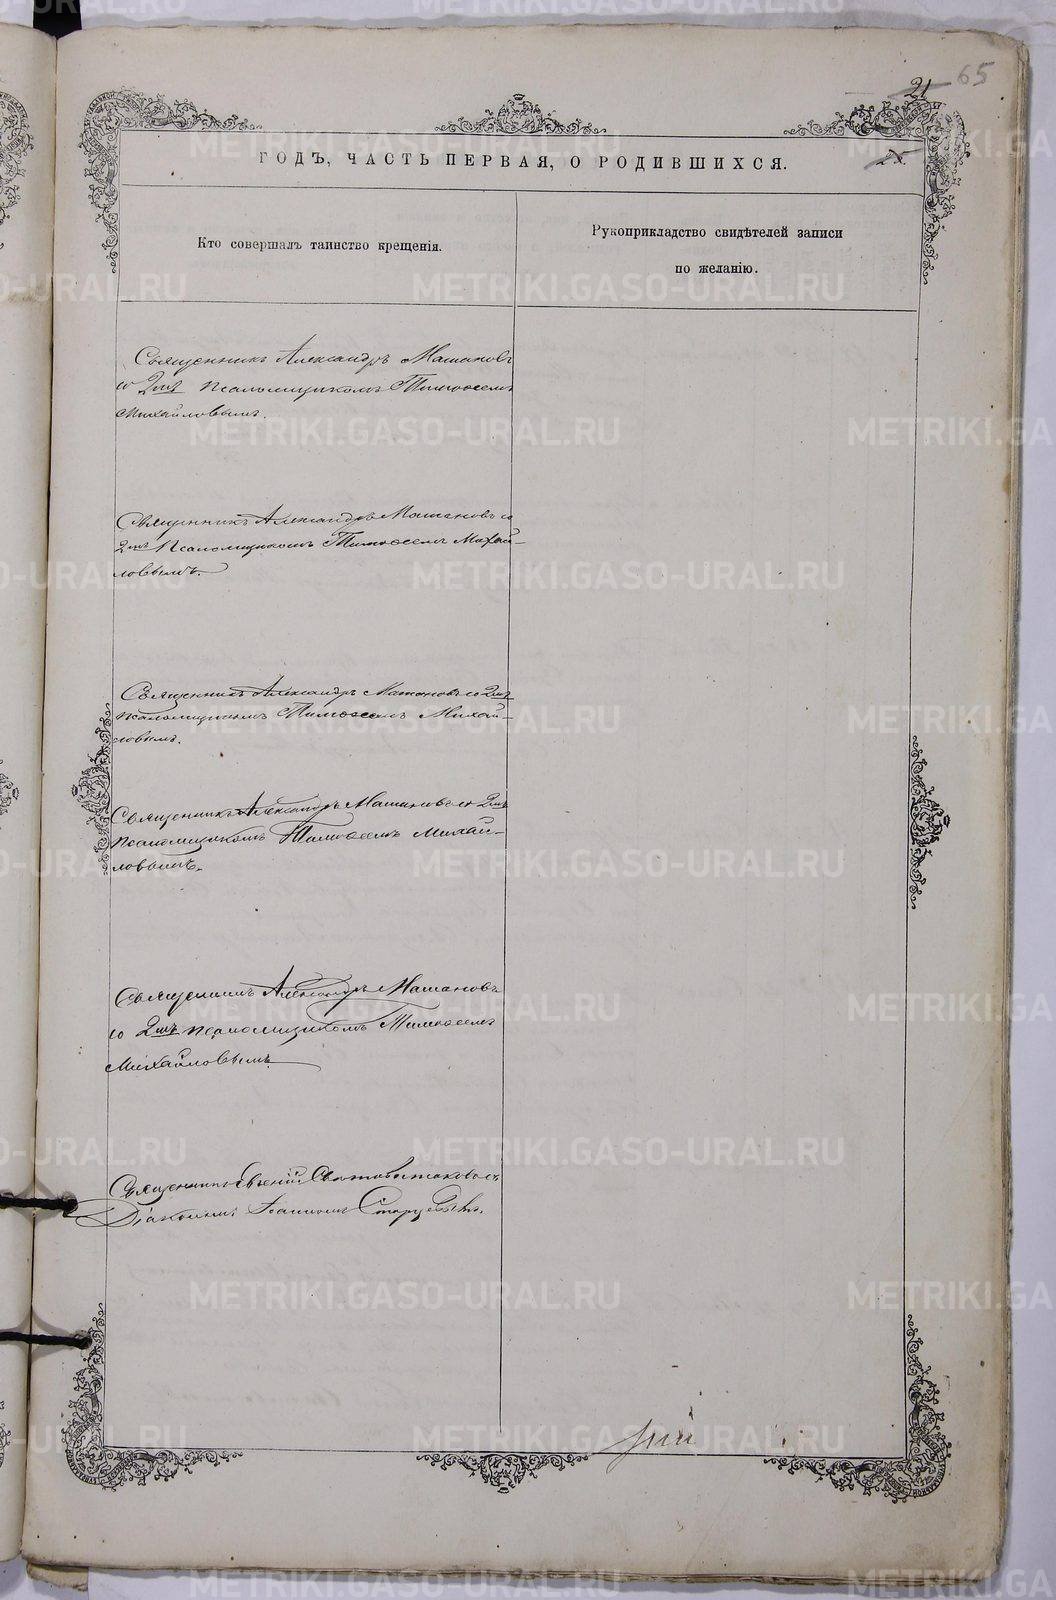 21
65
ГОДЪ, ЧАСТЬ ПЕРВАЯ, О РОДИВШИХСЯ.
Кто совершалъ таинство крещенія.
Рукоприкладство свидѣтелей записи
по желанію.
Священникъ Александръ Машановъ
со 2мъ псаломщикомъ Тимоѳеемъ
Михайловымъ.
Священникъ Александръ Машановъ со
2мъ псаломщикомъ Тимоѳеемъ Михай-
ловымъ.
Священникъ Александръ Машановъ со 2мъ
псаломщикомъ Тимоѳеемъ Михай-
ловымъ.
Священникъ Александръ Машановъ со 2мъ
псаломщикомъ Тимоѳеемъ Михай-
ловымъ.
Священникъ Александръ Машановъ
со 2мъ псаломщикомъ Тимоѳеемъ
Михайловымъ.
Священникъ Евгеній
Діакономъ Іоанномъ
METRIKI.GASO-URAL.RU